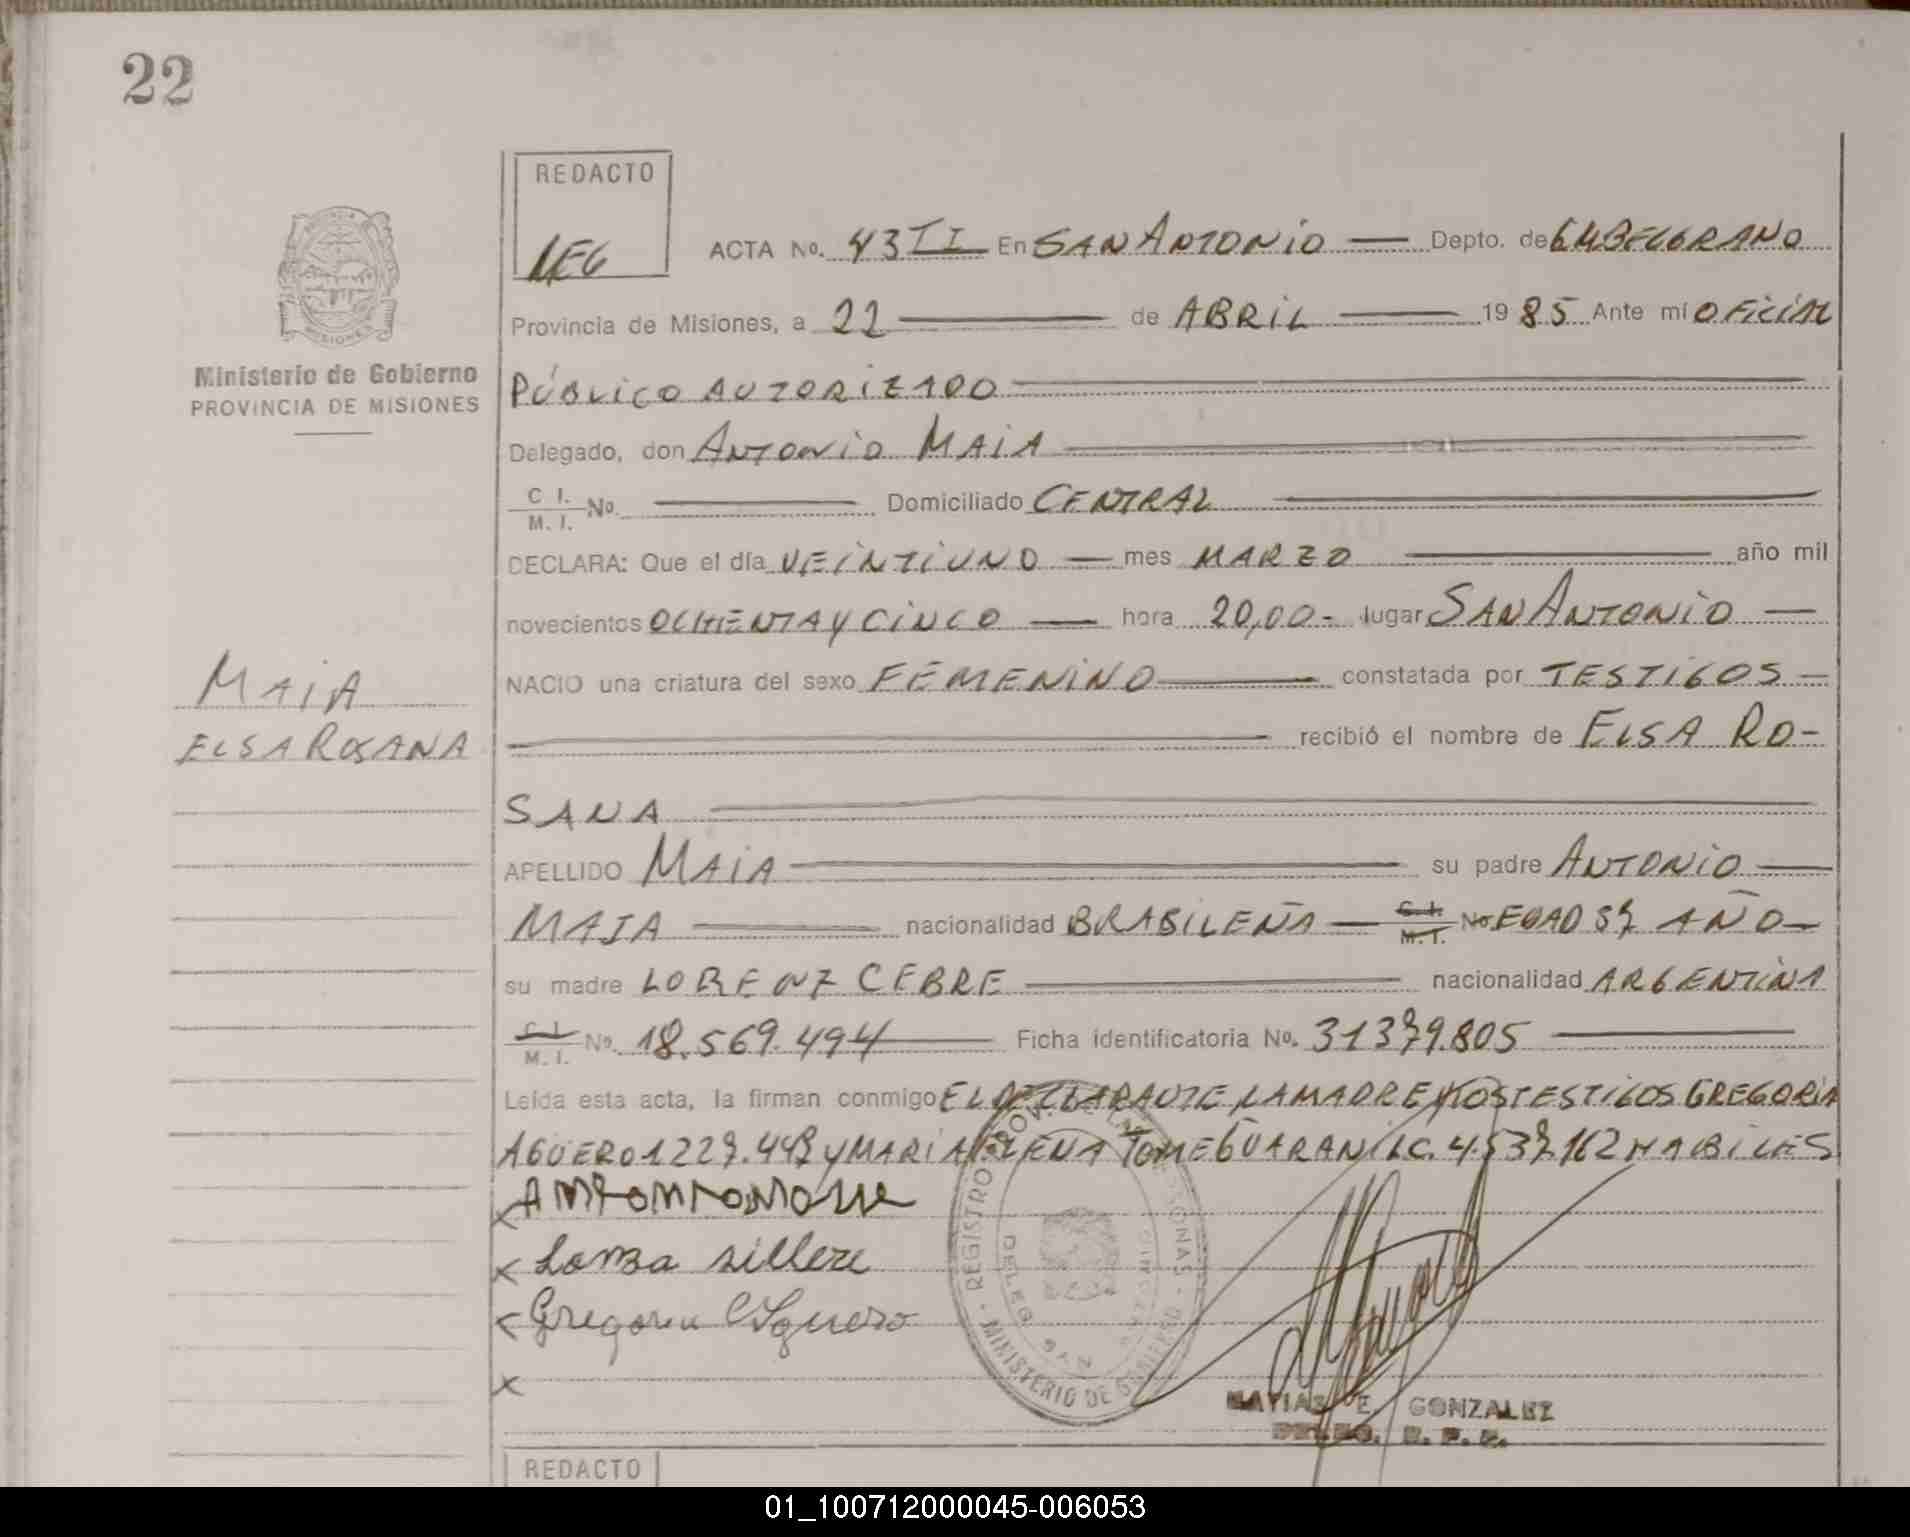 22
REDACTO
ACTA No. 43 II En SAN ANTONIO Depto. de GM BELGRANO
Provincia de Misiones, a 22 de ABRIL 1985 Ante mí OFICIAL
Ministerio de Gobierno
PROVINCIA DE MISIONES
PÚBLICO AUTORIZADO
Delegado, don ANTONIO MAIA
C I. / M. I. No. Domiciliado CENTRAL
DECLARA: Que el día VEINTIUNO mes MARZO año mil
novecientos OCHENTA Y CINCO hora 20,00- lugar SAN ANTONIO
NACIO una criatura del sexo FEMENINO constatada por TESTIGOS
MAIA
ELSA ROSANA
recibió el nombre de ELSA RO-
SANA
APELLIDO MAIA su padre ANTONIO
MAIA nacionalidad BRASILEÑA C.I. / M.I. No EDAD 57 AÑO
su madre LORENZ CEBRE nacionalidad ARGENTINA
C.I. / M. I. No. 18.569.494 Ficha identificatoria No. 31379.805
Leída esta acta, la firman conmigo EL DECLARANTE, LA MADRE Y LOS TESTIGOS GREGORIA
AGÜERO 1227.447 Y MARIA ELENA TOME GUARANI LC. 4.537.162 HABILES
X
X
X Gregoria Aguero
X
REGISTRO PERSONAS - MINISTERIO DE GOBIERNO
DELEG. SAN ANTONIO
MATIAS E. GONZALEZ
REDACTO
01_100712000045-006053